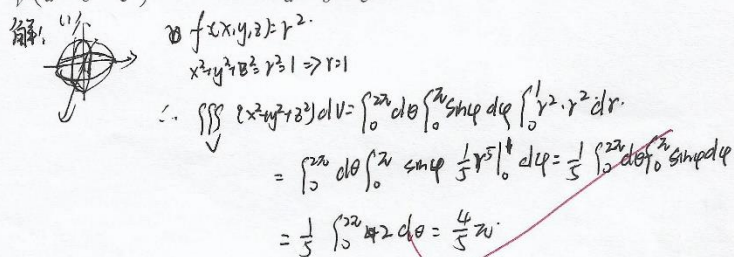 解: (1) f(x,y,z)=r².
x²+y²+z²=r²=1 => r=1
∴ ∭_V (x²+y²+z²)dV = ∫₀^{2π} dθ ∫₀^π sinφ dφ ∫₀^1 r²·r² dr.
= ∫₀^{2π} dθ ∫₀^π sinφ 1/5 r⁵|₀^1 dφ = 1/5 ∫₀^{2π} dθ ∫₀^π sinφ dφ
= 1/5 ∫₀^{2π} 2 dθ = 4/5 π.